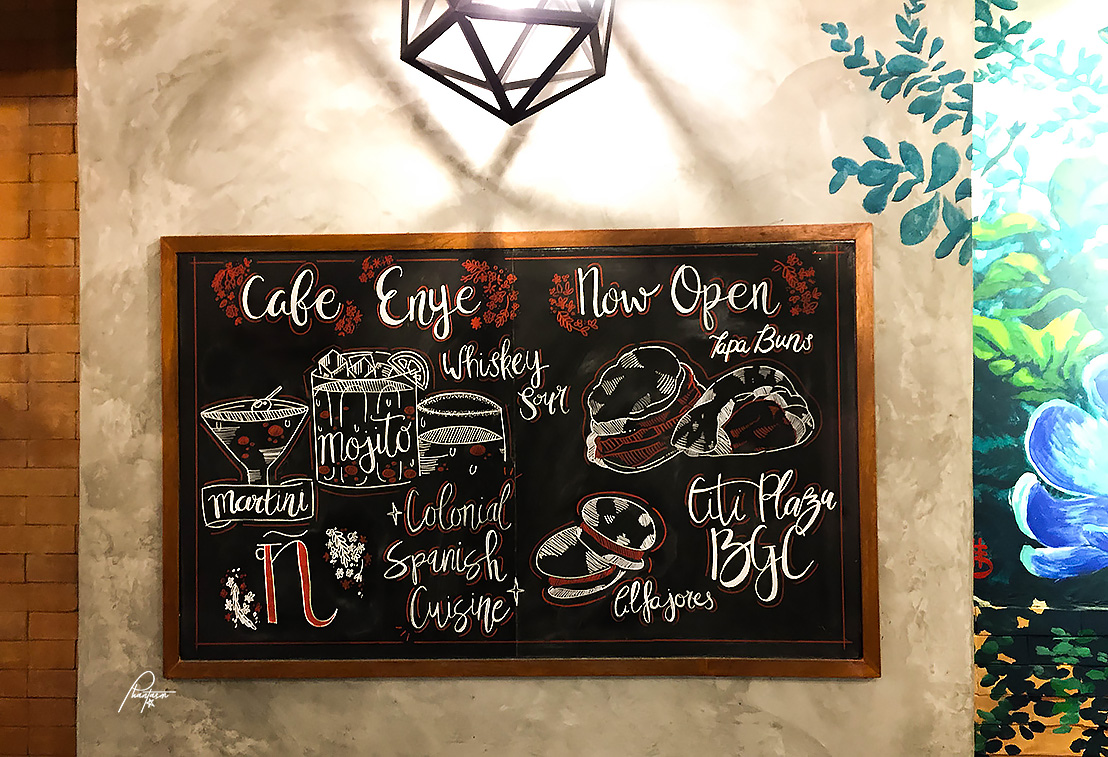 Cafe Enye
Whiskey
Sour
Mojito
Martini
ñ
Colonial
Spanish
Cuisine
Now Open
Tapa Buns
Citi Plaza
BGC
Alfajores
Phantasm